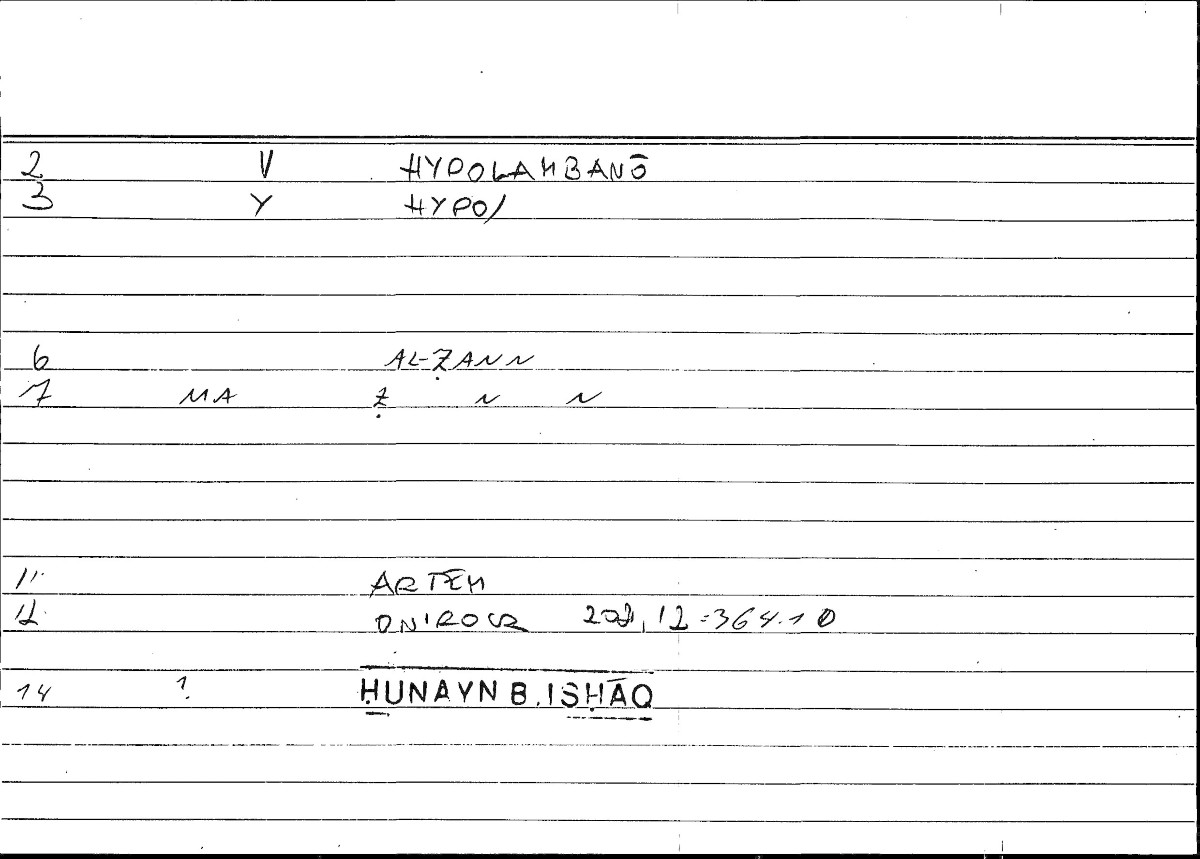 2 V HYPOLAMBANŌ
3 Y HYPO/
6 AL-ẒANN
7 MA Ẓ N N
11 ARTEM
12 ONIROCR ,12=364.10
14 ? ḤUNAYN B. ISḤĀQ